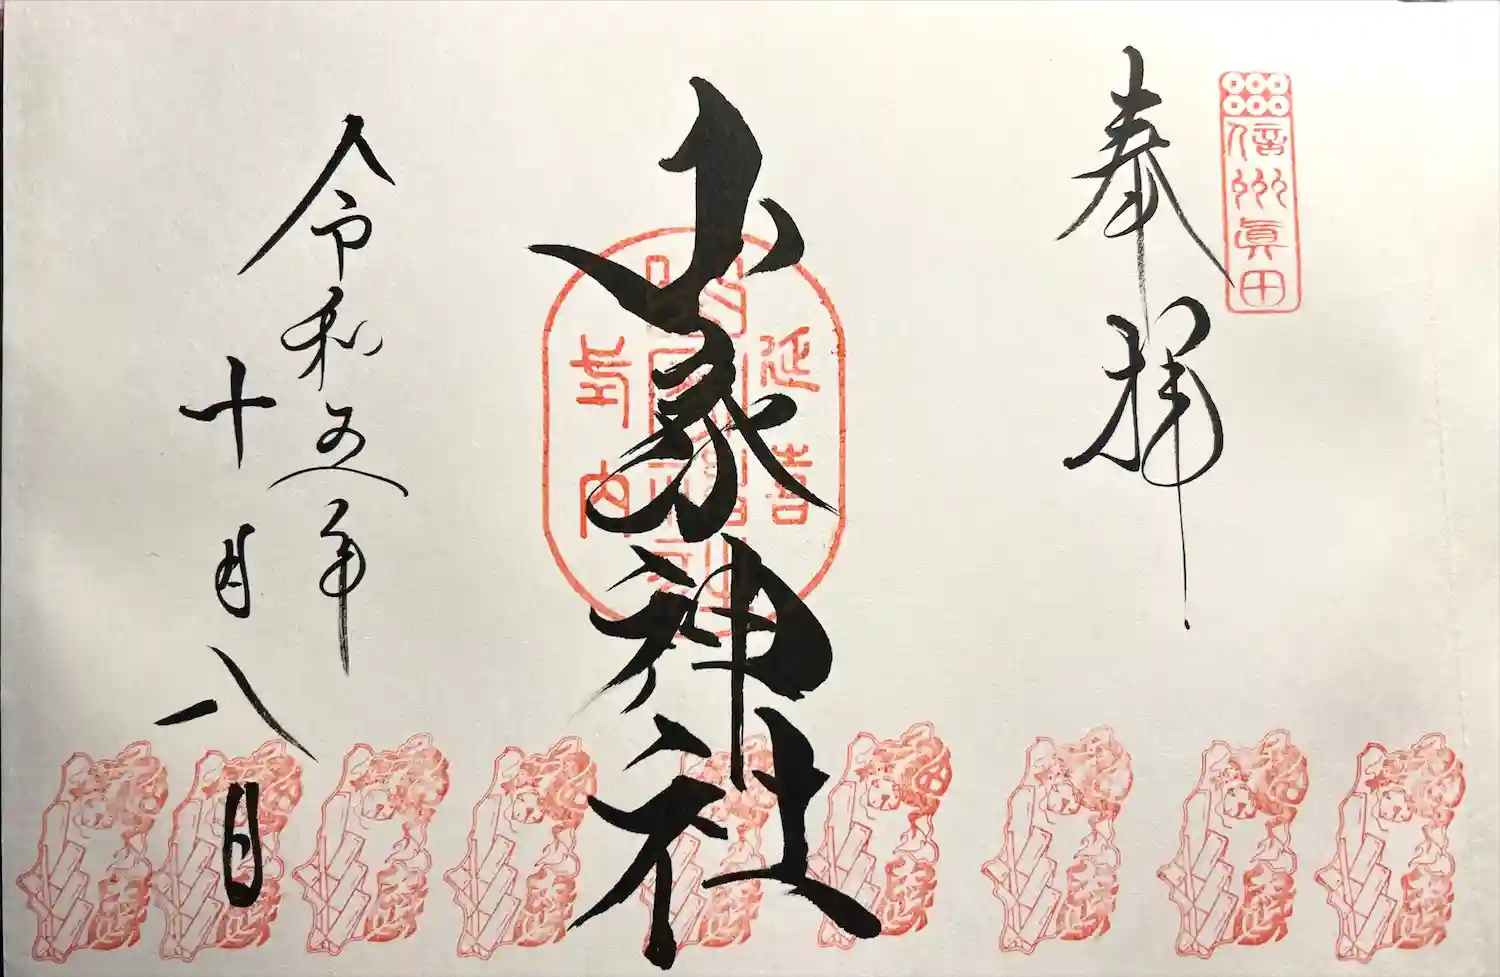 信州眞田
奉拝
山家神社
延喜
式内
令和五年
十月八日